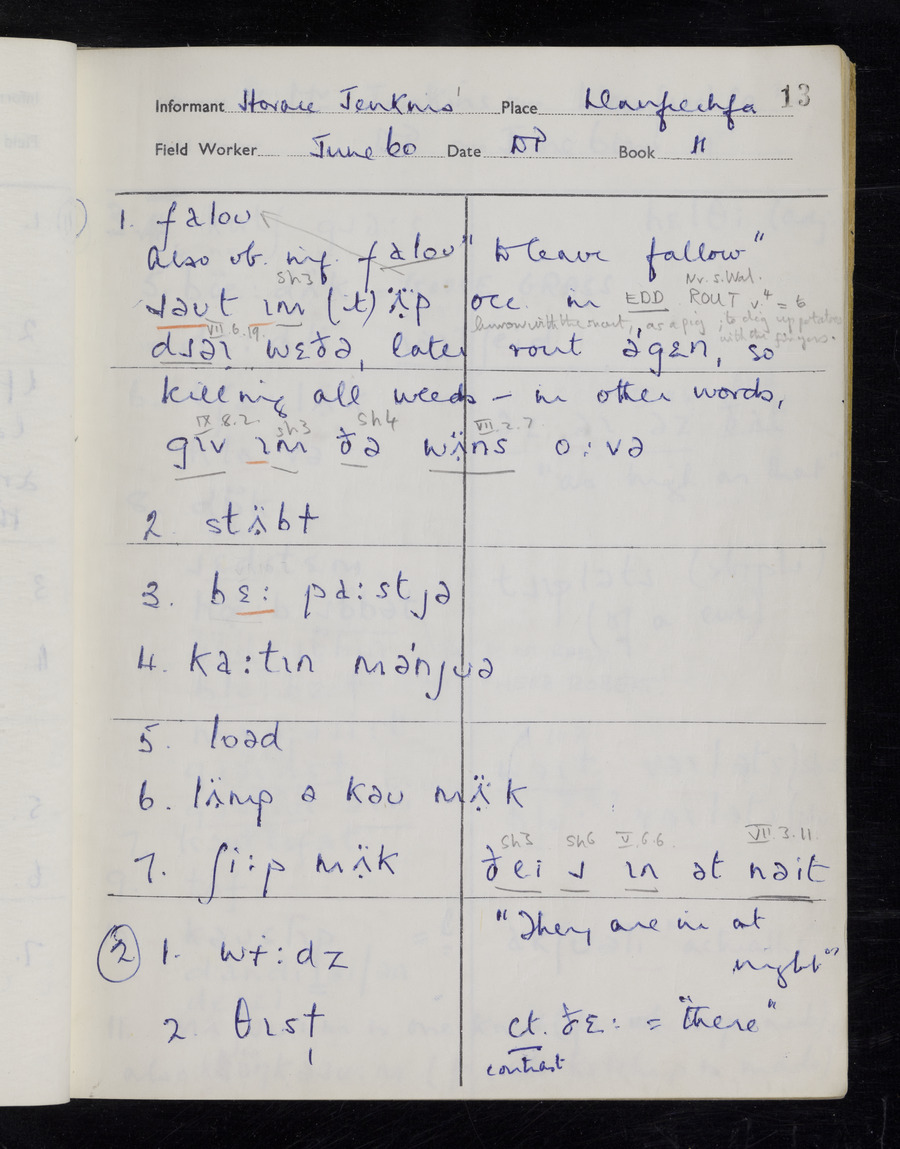 Informant Horace Jenkins Place Llanfrechfa 13
Field Worker June 60 Date DP Book II
1. falou
Also vb. inf. falou "to leave fallow"
sh3 Nr. S. Wal.
ɹəut ɪm (ɹt) ʌ̈p occ. in EDD ROUT v.4 = 6
VII.6.19. burrow with the snout, as a pig; to dig up potatoes with the fingers.
dɹəɪ wɛðə, later rout əgɛn, so
killing all weeds – in other words,
IX.8.2. sh3 sh4 VII.2.7
gɪv ɪm ðə wʌ̈ns o:və
2. stʌ̈bɫ
3. bɛ: pa:stjə
4. ka:tɪn manjuə
5. loəd
6. lʌ̈mp ə kəu mʌ̈k
sh3 sh6 V.6.6 VII.3.11
7. ʃi:p mʌ̈k ðei ɹ ɪn ət nəit
"They are in at night"
② 1. wi:dz
2. θɪsɫ̩ ct. ðɛ: = "there"
contrast